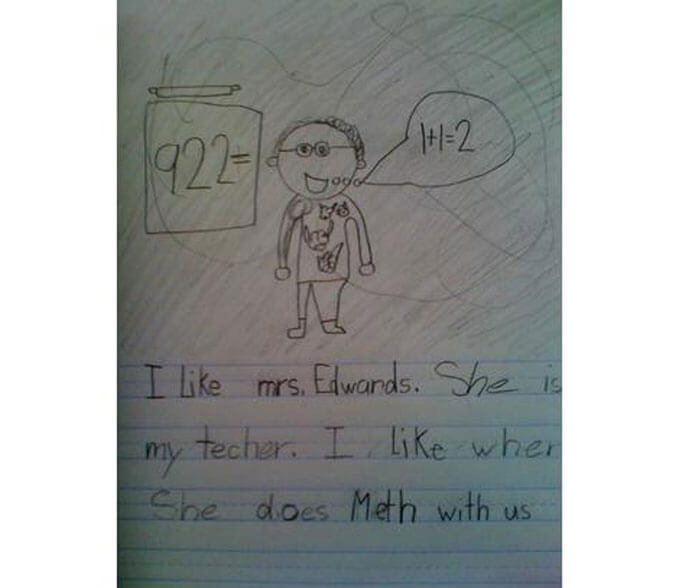 922=
1+1=2
I like mrs. Edwards. She is
my techer. I like when
She does Meth with us